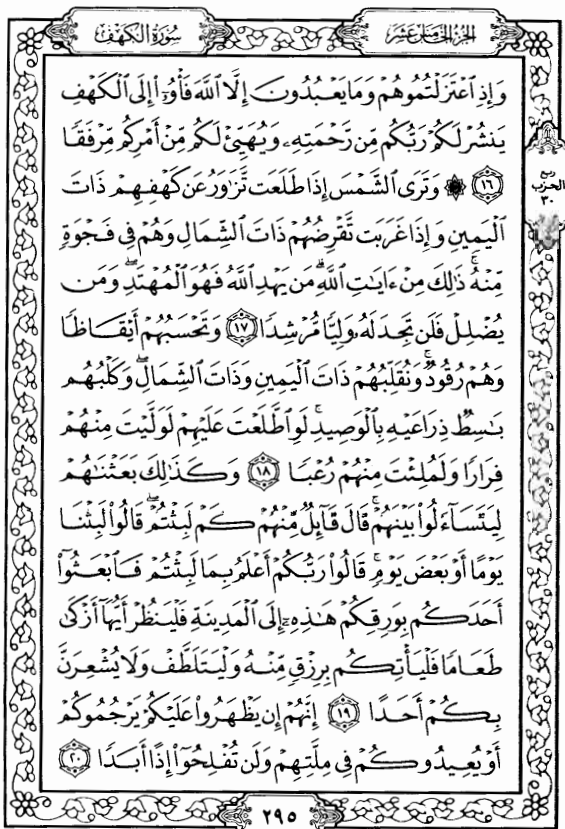 الجزء الخامس عشر
سورة الكهف
وَإِذِ ٱعۡتَزَلۡتُمُوهُمۡ وَمَا يَعۡبُدُونَ إِلَّا ٱللَّهَ فَأۡوُۥٓاْ إِلَى ٱلۡكَهۡفِ
يَنشُرۡ لَكُمۡ رَبُّكُم مِّن رَّحۡمَتِهِۦ وَيُهَيِّئۡ لَكُم مِّنۡ أَمۡرِكُم مِّرۡفَقٗا
١٦ ۞ وَتَرَى ٱلشَّمۡسَ إِذَا طَلَعَت تَّزَٰوَرُ عَن كَهۡفِهِمۡ ذَاتَ
ربع
الحزب
٣٠
ٱلۡيَمِينِ وَإِذَا غَرَبَت تَّقۡرِضُهُمۡ ذَاتَ ٱلشِّمَالِ وَهُمۡ فِي فَجۡوَةٖ
مِّنۡهُۚ ذَٰلِكَ مِنۡ ءَايَٰتِ ٱللَّهِۗ مَن يَهۡدِ ٱللَّهُ فَهُوَ ٱلۡمُهۡتَدِۖ وَمَن
يُضۡلِلۡ فَلَن تَجِدَ لَهُۥ وَلِيّٗا مُّرۡشِدٗا ١٧ وَتَحۡسَبُهُمۡ أَيۡقَاظٗا
وَهُمۡ رُقُودٞۚ وَنُقَلِّبُهُمۡ ذَاتَ ٱلۡيَمِينِ وَذَاتَ ٱلشِّمَالِۖ وَكَلۡبُهُم
بَٰسِطٞ ذِرَاعَيۡهِ بِٱلۡوَصِيدِۚ لَوِ ٱطَّلَعۡتَ عَلَيۡهِمۡ لَوَلَّيۡتَ مِنۡهُمۡ
فِرَارٗا وَلَمُلِئۡتَ مِنۡهُمۡ رُعۡبٗا ١٨ وَكَذَٰلِكَ بَعَثۡنَٰهُمۡ
لِيَتَسَآءَلُواْ بَيۡنَهُمۡۚ قَالَ قَآئِلٞ مِّنۡهُمۡ كَمۡ لَبِثۡتُمۡۖ قَالُواْ لَبِثۡنَا
يَوۡمًا أَوۡ بَعۡضَ يَوۡمٖۚ قَالُواْ رَبُّكُمۡ أَعۡلَمُ بِمَا لَبِثۡتُمۡ فَٱبۡعَثُوٓاْ
أَحَدَكُم بِوَرِقِكُمۡ هَٰذِهِۦٓ إِلَى ٱلۡمَدِينَةِ فَلۡيَنظُرۡ أَيُّهَآ أَزۡكَىٰ
طَعَامٗا فَلۡيَأۡتِكُم بِرِزۡقٖ مِّنۡهُ وَلۡيَتَلَطَّفۡ وَلَا يُشۡعِرَنَّ
بِكُمۡ أَحَدًا ١٩ إِنَّهُمۡ إِن يَظۡهَرُواْ عَلَيۡكُمۡ يَرۡجُمُوكُمۡ
أَوۡ يُعِيدُوكُمۡ فِي مِلَّتِهِمۡ وَلَن تُفۡلِحُوٓاْ إِذًا أَبَدٗا ٢٠
٢٩٥